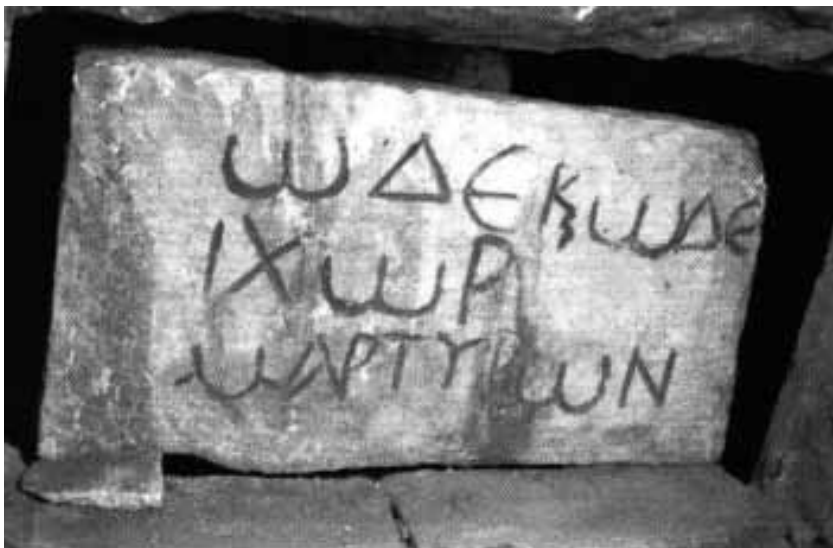 ωΔΕ Κ ωΔΕ
ΙΧωΡ
ΜΑΡΤΥΡωΝ